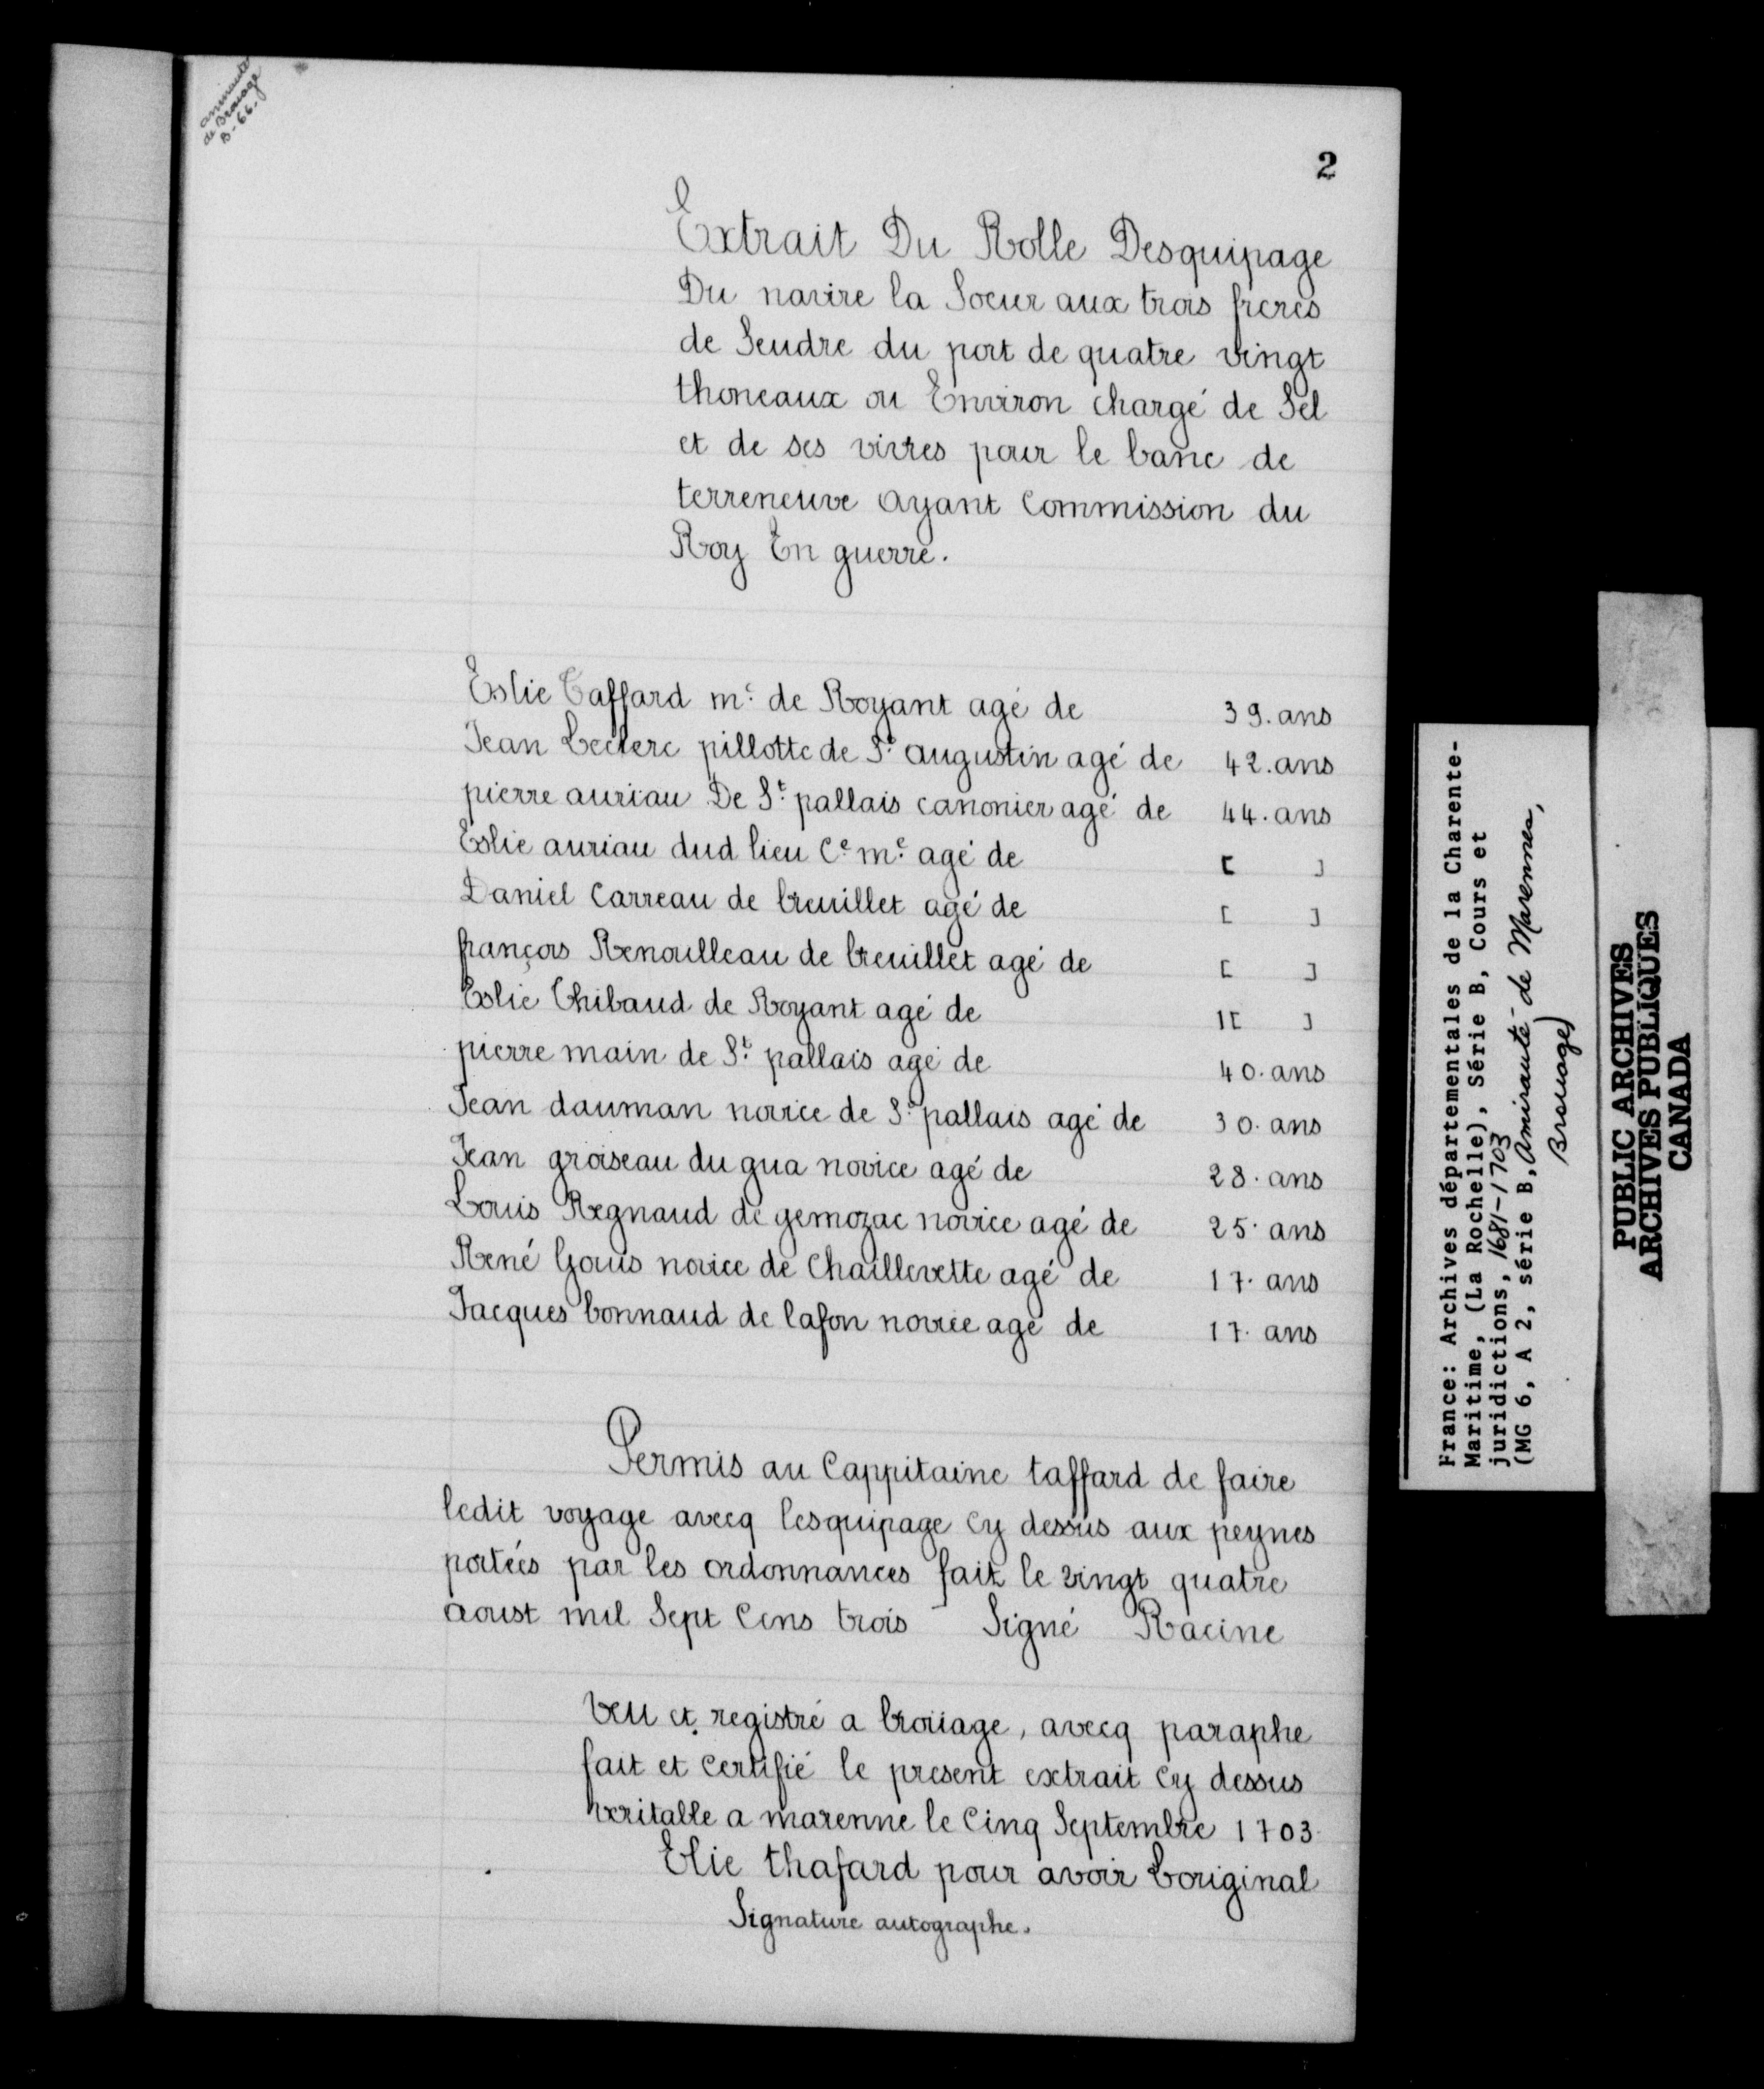 amirauté
de Brouage
B-66.
2
Extrait Du Rolle Desquipage
Du navire la Soeur aux trois freres
de Seudre du port de quatre vingt
thoneaux ou Environ chargé de Sel
et de ses vivres pour le banc de
terreneuve ayant Commission du
Roy En guerre.
Eslie Taffard me. de Royant agé de 39. ans
Jean Leclerc pillotte de St. augustin agé de 42. ans
pierre auriau De St. pallais canonier agé de 44. ans
Eslie auriau dud lieu Ce. me. agé de [ ]
Daniel Carreau de breuillet agé de [ ]
françois Renoulleau de breuillet agé de [ ]
Eslie Thibaud de Royant agé de 1[ ]
pierre main de St. pallais agé de 40. ans
Jean dauman novice de St. pallais agé de 30. ans
Jean groiseau du gua novice agé de 28. ans
Louis Regnaud de gemozac novice agé de 25. ans
René Gouis novice de Chaillevette agé de 17. ans
Jacques bonnaud de lafon novice agé de 17. ans
Permis au Cappitaine taffard de faire
ledit voyage avecq lesquipage Cy dessus aux peynes
portées par les ordonnances fait le vingt quatre
aoust mil Sept Cens trois Signé Racine
Veu et registré a broüage, avecq paraphe
fait et Certifié le present extrait Cy dessus
veritable a marenne le Cinq Septembre 1703.
Elie thafard pour avoir Loriginal
Signature autographe.
France: Archives départementales de la Charente-
Maritime, (La Rochelle), Série B, Cours et
juridictions, 1681-1703
(MG 6, A 2, série B, Amirauté de Marennes,
Brouage)
PUBLIC ARCHIVES
ARCHIVES PUBLIQUES
CANADA